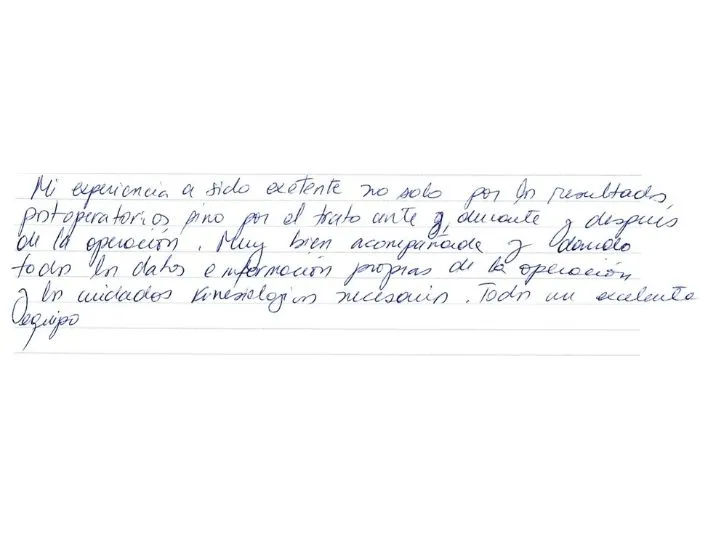 Mi experiencia a sido exelente no solo por los resultados
postoperatorios sino por el trato ante y durante y después
de la operación. Muy bien acompañada y dando
todos los datos e información propias de la operación
y los cuidados kinesiologicos necesarios. Todos un excelente
equipo